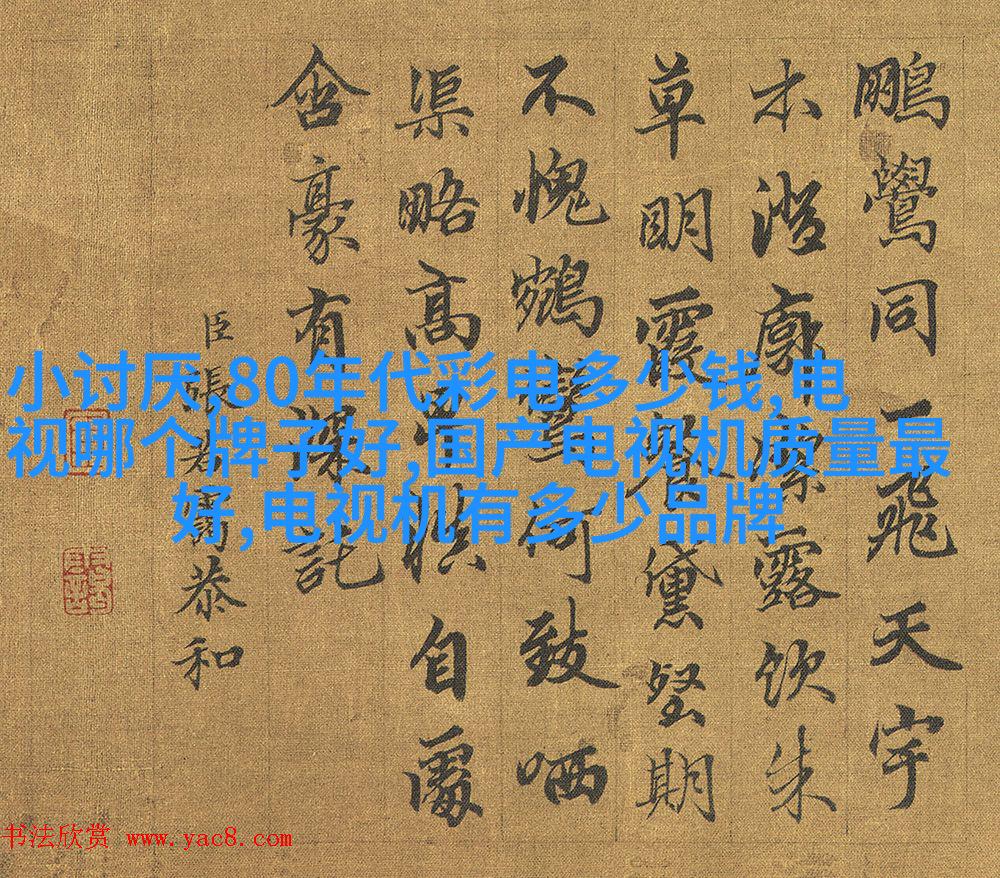 鵬鷽同一飛天宇
木澄廓露飲朱
草明霞黛堅期
不愧鶴何致哂
渠略高自
含豪有託
臣張若靄恭和
小讨厌,80年代彩电多少钱,电
视哪个牌子好,国产电视机质量最
好,电视机有多少品牌
书法欣赏 www.yac8.com